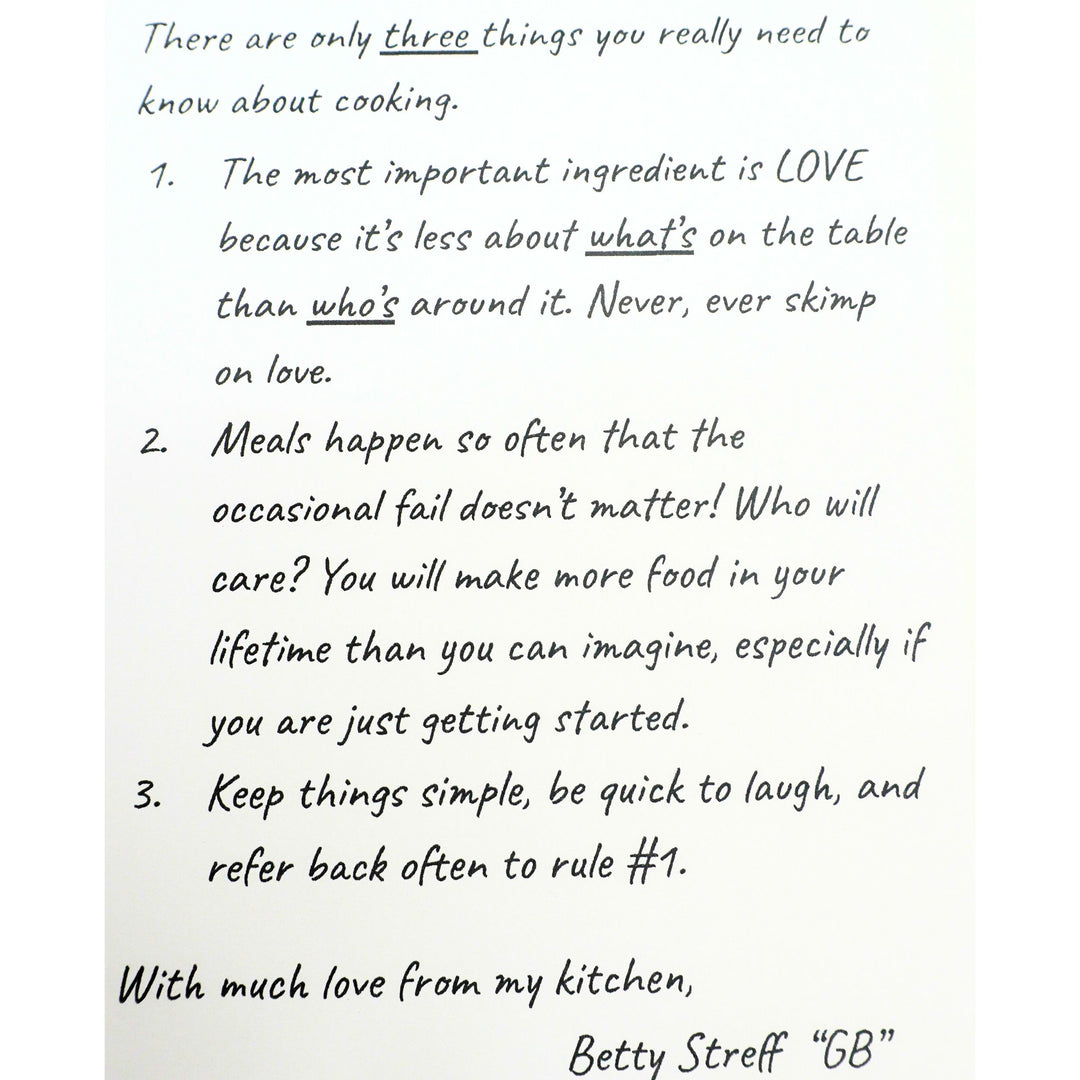 There are only three things you really need to
know about cooking.
1. The most important ingredient is LOVE
because it's less about what's on the table
than who's around it. Never, ever skimp
on love.
2. Meals happen so often that the
occasional fail doesn't matter! Who will
care? You will make more food in your
lifetime than you can imagine, especially if
you are just getting started.
3. Keep things simple, be quick to laugh, and
refer back often to rule #1.
With much love from my kitchen,
Betty Streff "GB"